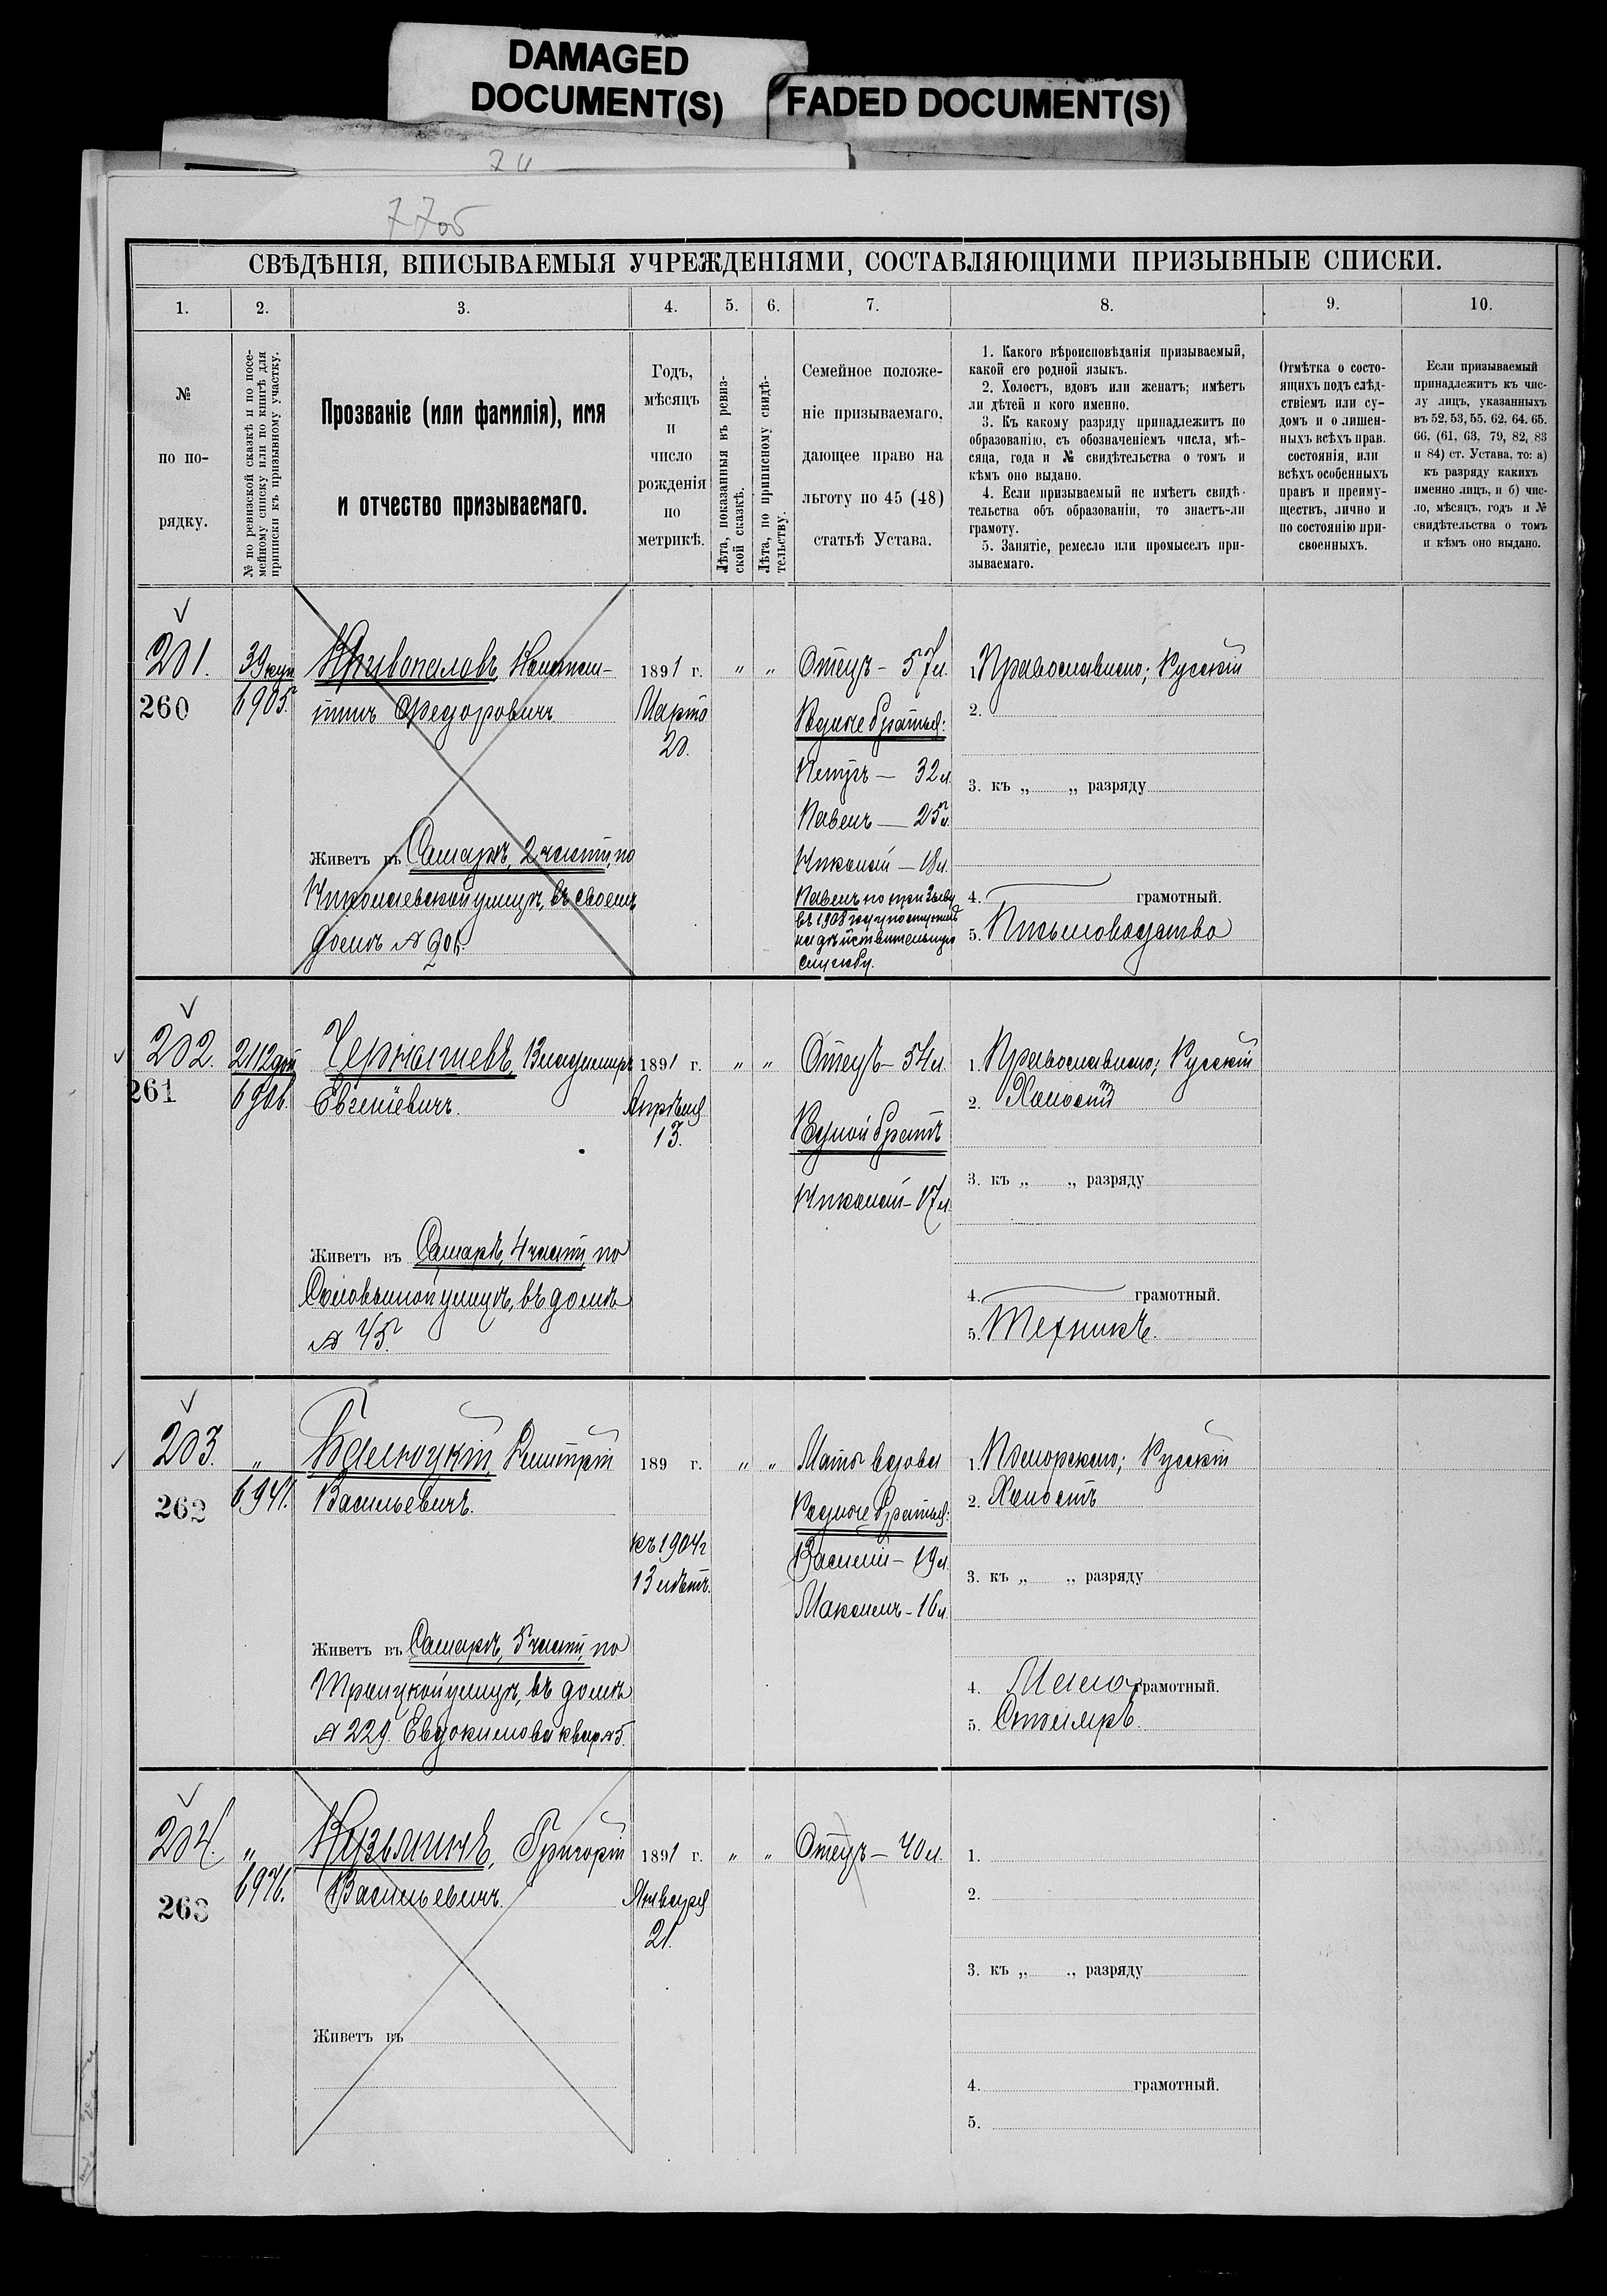 DAMAGED
DOCUMENT(S)
FADED DOCUMENT(S)
74
77об
СВѢДѢНІЯ, ВПИСЫВАЕМЫЯ УЧРЕЖДЕНІЯМИ, СОСТАВЛЯЮЩИМИ ПРИЗЫВНЫЕ СПИСКИ.
1. 2. 3. 4. 5. 6. 7. 8. 9. 10.
№
по по-
рядку.
№ по ревизской сказкѣ и по посе-
мейному списку или по книгѣ для
приписки къ призывному участку.
Прозваніе (или фамилія), имя
и отчество призываемаго.
Годъ,
мѣсяцъ
и
число
рожденія
по
метрикѣ.
Лѣта, показанныя въ ревиз-
ской сказкѣ.
Лѣта, по приписному свидѣ-
тельству.
Семейное положе-
ніе призываемаго,
дающее право на
льготу по 45 (48)
статьѣ Устава.
1. Какого вѣроисповѣданія призываемый,
какой его родной языкъ.
2. Холостъ, вдовъ или женатъ; имѣетъ
ли дѣтей и кого именно.
3. Къ какому разряду принадлежитъ по
образованію, съ обозначеніемъ числа, мѣ-
сяца, года и № свидѣтельства о томъ и
кѣмъ оно выдано.
4. Если призываемый не имѣетъ свидѣ-
тельства объ образованіи, то знаетъ-ли
грамоту.
5. Занятіе, ремесло или промыселъ при-
зываемаго.
Отмѣтка о состо-
ящихъ подъ слѣд-
ствіемъ или су-
домъ и о лишен-
ныхъ всѣхъ прав.
состоянія, или
всѣхъ особенныхъ
правъ и преиму-
ществъ, лично и
по состоянію при-
своенныхъ.
Если призываемый
принадлежитъ къ чис-
лу лицъ, указанныхъ
въ 52, 53, 55, 62, 64, 65,
66, (61, 63, 79, 82, 83
и 84) ст. Устава, то: а)
къ разряду какихъ
именно лицъ, и б) чис-
ло, мѣсяцъ, годъ и №
свидѣтельства о томъ
и кѣмъ оно выдано.
201.
260
39 куп
6905.
Кривопаловъ, Констан-
тинъ Федоровичъ
Живетъ въ Самарѣ, 2 части, по
Николаевской улицѣ, въ своемъ
домѣ №
1891 г.
Марта
20.
„ „
Отецъ – 57 л.
Родные братья:
Петръ — 32 л.
Павелъ — 25 л.
Николай — 18 л.
Павелъ по призыву
въ 1908 году поступилъ
на дѣйствительную
службу.
1. Православнаго; Русскій
2.
3. къ „ „ разряду
4. грамотный.
5. Письмоводство
202.
261
2112
6906.
Чернышевъ, Владимиръ
Евгеніевичъ.
Живетъ въ Самарѣ, 4 части, по
Соловьиной улицѣ, въ домѣ
№ 45.
1891 г.
Апрѣля
13.
„ „
Отецъ – 54 л.
Родной братъ
Николай – 17 л.
1. Православнаго; Русскій
2. Холостъ
3. къ „ „ разряду
4. грамотный.
5. Техникъ.
203.
262
„
6941.
Дмитрій
Васильевичъ.
Живетъ въ Самарѣ, 5 части, по
Троицкой улицѣ, въ домѣ
№ 229. Евдокимова квар. №5.
189 г.
къ 1904 г
13 лѣтъ.
„ „
Мать вдова
Родные братья:
Василій – 19 л.
Максимъ – 16 л.
1. Поморскаго; Русскій
2. Холостъ
3. къ „ „ разряду
4. Мало грамотный.
5. Столяръ.
204.
263
„
6976.
Кузьминъ, Григорій
Васильевичъ.
Живетъ въ
1891 г.
Января
21.
„ „
Отецъ – 40 л.
1.
2.
3. къ „ „ разряду
4. грамотный.
5.